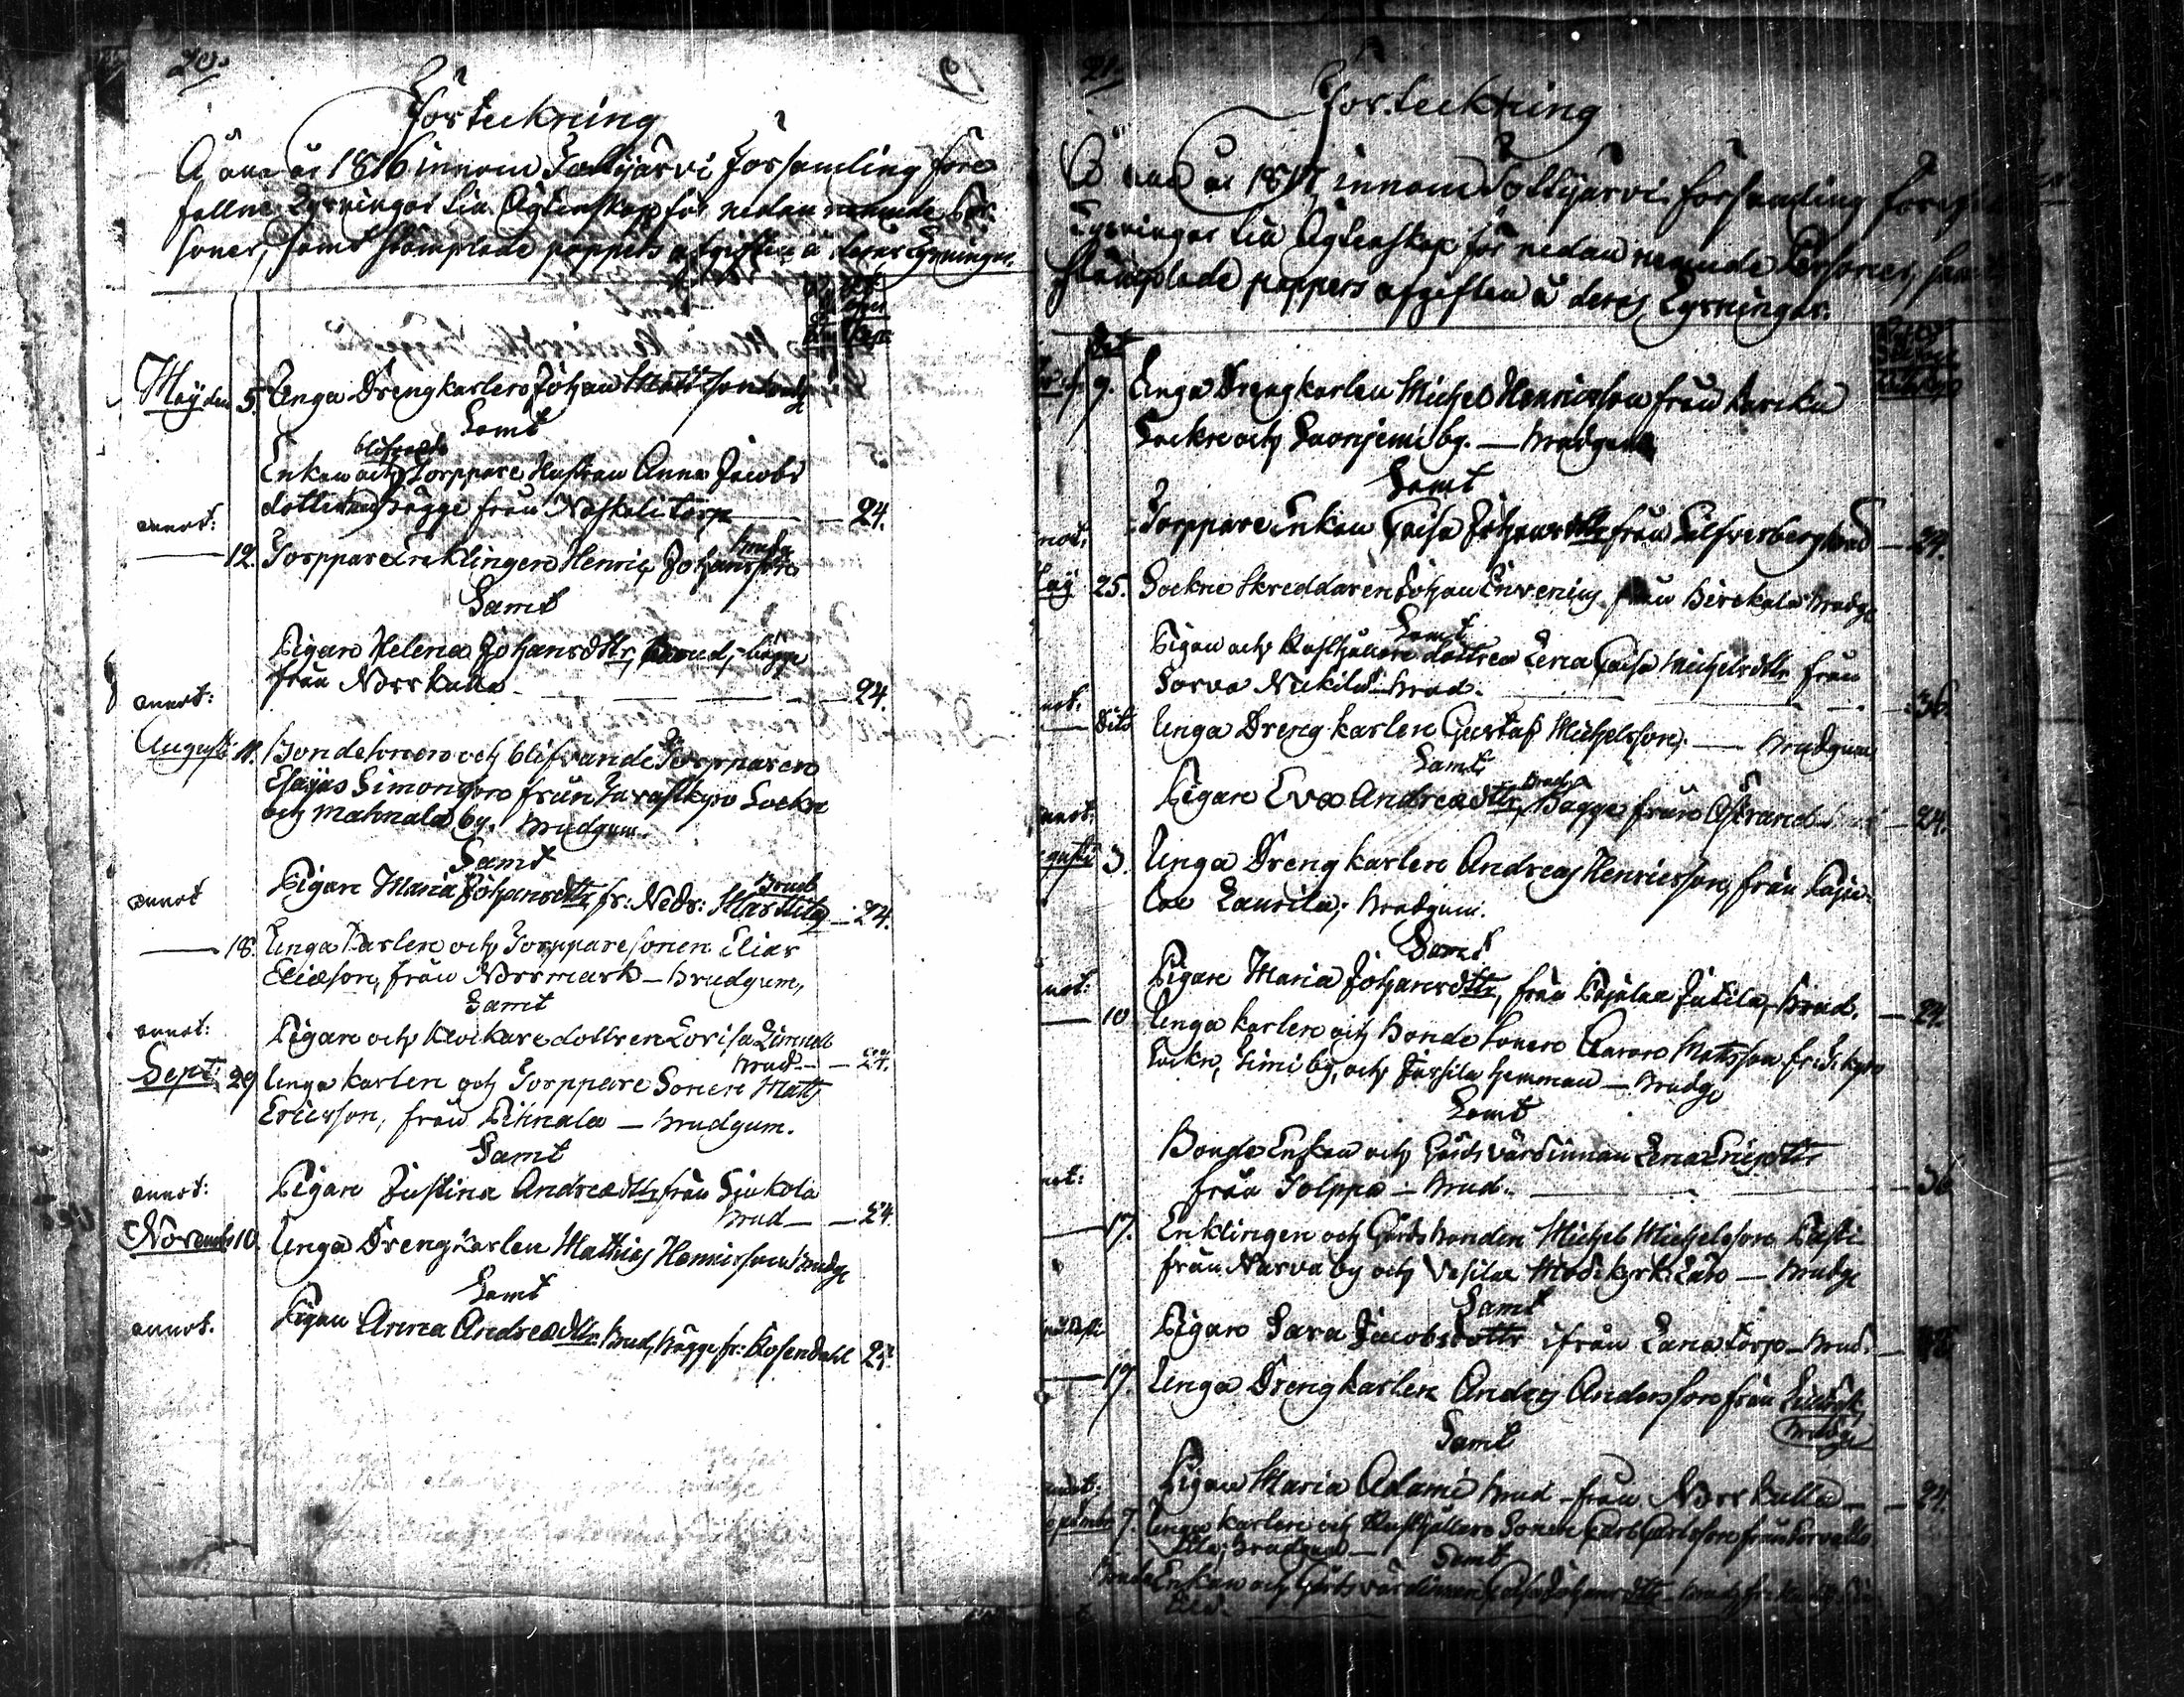 20.
Förteckning
Å åhr 1816 innom Tottijärvi Församling före
fallne Lysningar till Ägtenskap för nedan nemnde Per
soner, samt stämplade pappers afgiften å deras Lysningar.
May den 5. Unga Drengkarlen Johan Mattsson brudg
Samt
blifvande
Enkan och Torppare Hustrun Anna Jacobs
dotter brud bägge från Naskali torp
annot: — 24.
— 12. Torppare Enklingen Henric Johansson brudg
Samt
Pigan Helena Johansdttr, brud, bägge
från Norrkulla
annot: — 24.
Augusti 11. Bondesonen och blifvande Torpparen
Esaias Simonsson från Tavastkyro Sockn
och Mahnala by. Brudgum.
Samt
Brud
annot Pigan Maria Johansdttr, fr: Nedr: Marttila — 24.
— 18. Unga karlen och Torpparesonen Elias
Eliæson, från Norrmark — Brudgum,
Samt
annot: Pigan och Klockaredottren Lovisa
Brud — 24.
Sept: 29 Unga karlen och Torppare Sonen Matts
Ericsson, från Pihnala — Brudgum.
Samt
annot: Pigan Justina Andreædttr från Sjukola
Brud — 24.
Novemb 10. Unga Drengkarlen Mathias Henricsson brudg
Samt
annot. Pigan Anna Andreædttr brud, bägge fr: Rosendahl 24.
21.
Förteckning
Å åhr 1817, innom Tottijärvi församling
Lysningar till Ägtenskap för nedan nemnde Personer, samt
stämplade pappers afgiften å deras Lysningar.
9. Unga Drengkarlen Michel Henricsson från Karcku
Sockn och Saonjemi by. — brudgum
Samt
not, Torppare Enkan Caisa Johansdttr från Silfversberg brud — 24.
May 25. Sockne Skreddaren Johan Enrenius från Birckala brudg
Samt
Pigan och Rusthållare dottren Lena Caisa Michelsdttr från
Sorva Nickilä brud.
not. — 36.
— dito Unga Drengkarlen Gustaf Michelsson, — brudgum
Samt
brud
annot. Pigan Eva Andreædttr, Bägge från Östrand — 24.
gusti 3. Unga Drengkarlen Andreas Henricsson, från Paju-
la Laurila, brudgum.
Samt
not: Pigan Maria Johansdttr, från Pajula Jutila, brud. — 24.
— 10 Unga karlen och Bonde Sonen Aaron Mattsson fr: T: kyro
Sockn, Timi by, och Jussila hemman — brudg
Samt
Bonde Enkan och Gårdsvärdinnan Lena Ericsdttr
not: från Tolppa — brud. — 36
— 17. Enklingen och Gårds bonden Michel Michelsson Pasti
från Narva by och Vesilax Moderkyrk: Lato — brudg
Samt
Pigan Sara Jacobsdottr ifrån Lanatorp — brud.
— 17. Unga Drengkarlen Anders Andersson från
brudg
Samt
annot: Pigan Maria Adami brud — från Norrkulla — 24.
eptembr 7. Unga karlen och Rusthållare Sonen Carl Carlsson från Korvalla
brudgum —
Samt
Bonde Enkan och Gårdsvärdinnan Caisa Johansdttr — brud, fr: